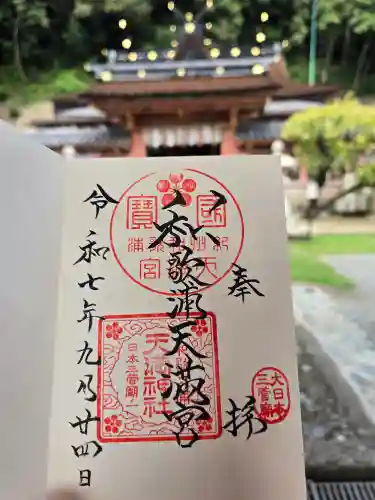 奉拝
大日本
三菅廟
國寶
和歌浦天満宮
天満神社
日本三菅廟ノ一
令和七年九月廿四日